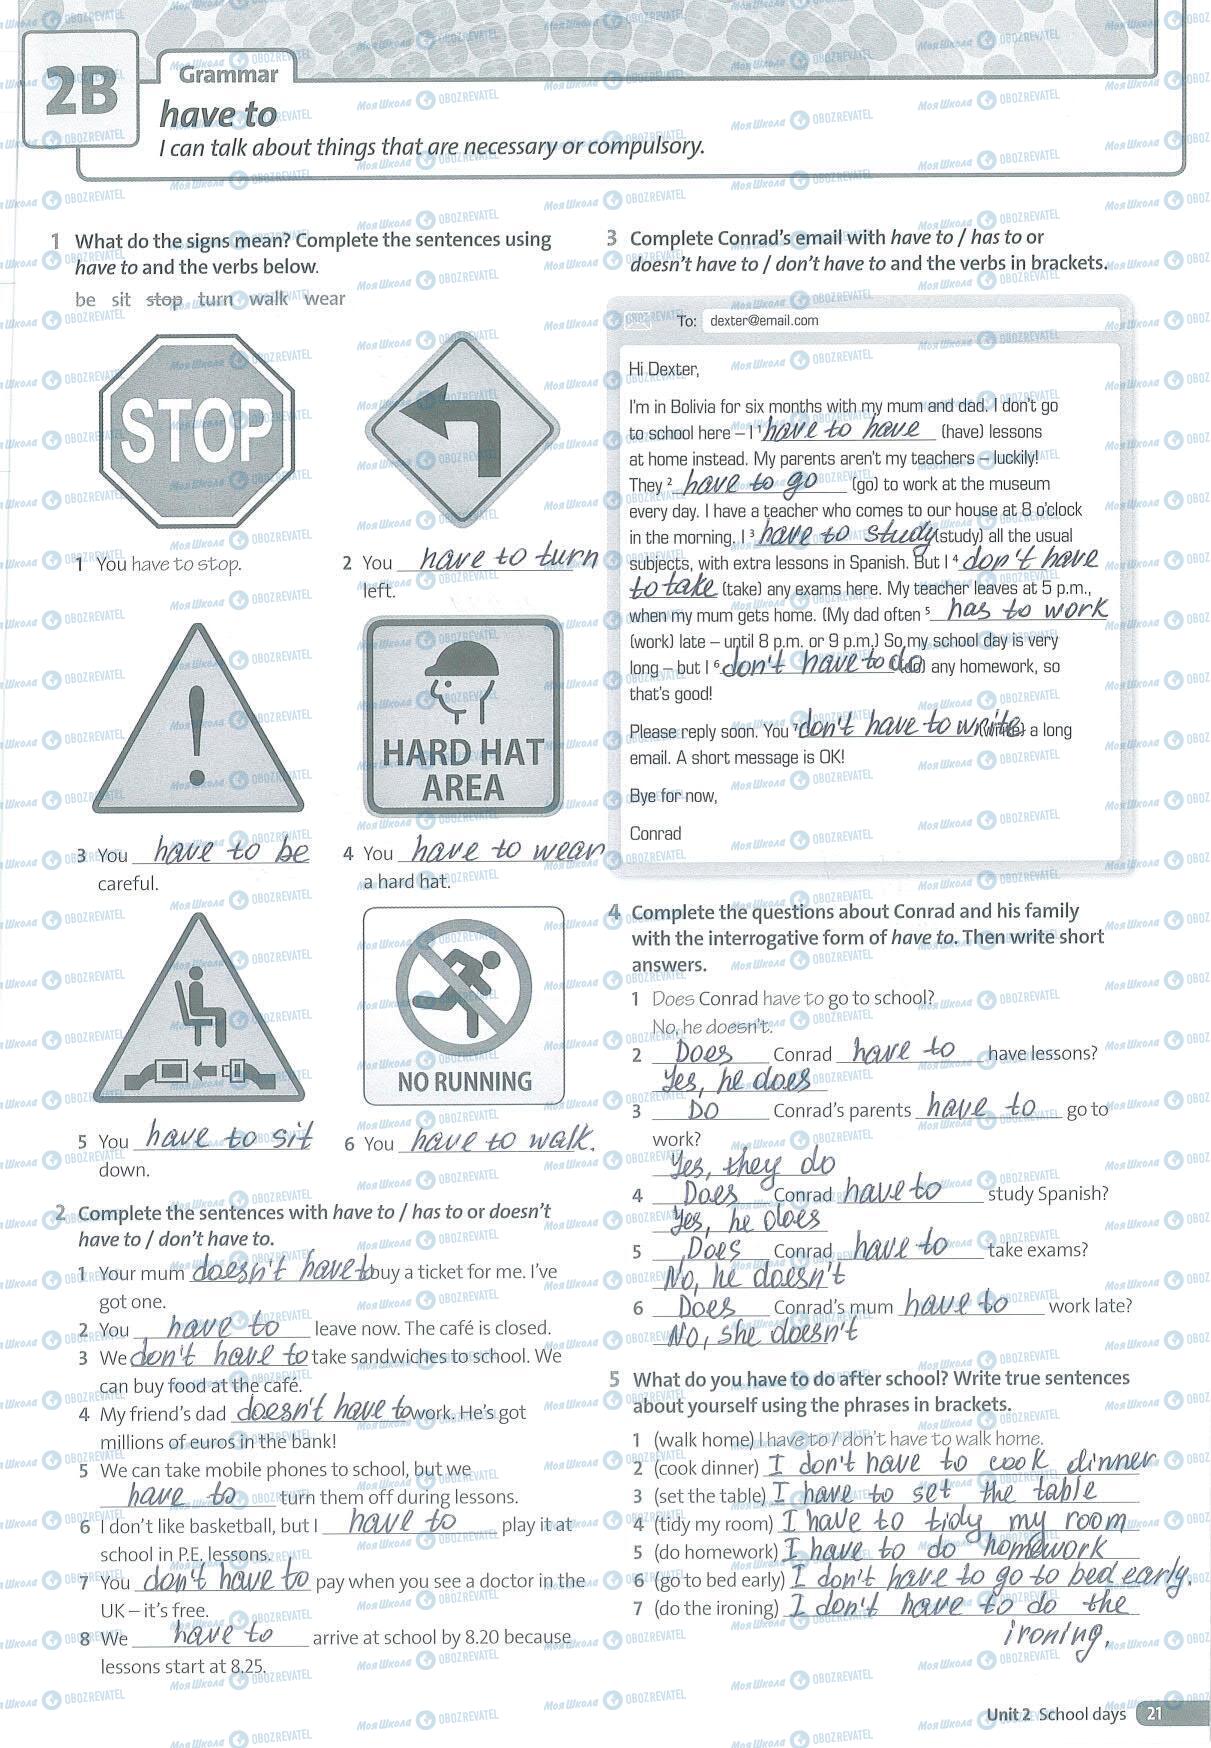 2B
Grammar
have to
I can talk about things that are necessary or compulsory.
1 What do the signs mean? Complete the sentences using
have to and the verbs below.
be sit stop turn walk wear
STOP
1 You have to stop.
2 You have to turn
left.
HARD HAT
AREA
3 You have to be
careful.
4 You have to wear
a hard hat.
NO RUNNING
5 You have to sit
down.
6 You have to walk.
2 Complete the sentences with have to / has to or doesn't
have to / don't have to.
1 Your mum doesn't have to buy a ticket for me. I've
got one.
2 You have to leave now. The café is closed.
3 We don't have to take sandwiches to school. We
can buy food at the café.
4 My friend's dad doesn't have to work. He's got
millions of euros in the bank!
5 We can take mobile phones to school, but we
have to turn them off during lessons.
6 I don't like basketball, but I have to play it at
school in P.E. lessons.
7 You don't have to pay when you see a doctor in the
UK – it's free.
8 We have to arrive at school by 8.20 because
lessons start at 8.25.
3 Complete Conrad's email with have to / has to or
doesn't have to / don't have to and the verbs in brackets.
To: dexter@email.com
Hi Dexter,
I'm in Bolivia for six months with my mum and dad. I don't go
to school here – I 1 have to have (have) lessons
at home instead. My parents aren't my teachers – luckily!
They 2 have to go (go) to work at the museum
every day. I have a teacher who comes to our house at 8 o'clock
in the morning. I 3 have to study (study) all the usual
subjects, with extra lessons in Spanish. But I 4 don't have
to take (take) any exams here. My teacher leaves at 5 p.m.,
when my mum gets home. (My dad often 5 has to work
(work) late – until 8 p.m. or 9 p.m.) So my school day is very
long – but I 6 don't have to do (do) any homework, so
that's good!
Please reply soon. You 7 don't have to write (write) a long
email. A short message is OK!
Bye for now,
Conrad
4 Complete the questions about Conrad and his family
with the interrogative form of have to. Then write short
answers.
1 Does Conrad have to go to school?
No, he doesn't.
2 Does Conrad have to have lessons?
Yes, he does
3 Do Conrad's parents have to go to
work?
Yes, they do
4 Does Conrad have to study Spanish?
Yes, he does
5 Does Conrad have to take exams?
No, he doesn't
6 Does Conrad's mum have to work late?
No, she doesn't
5 What do you have to do after school? Write true sentences
about yourself using the phrases in brackets.
1 (walk home) I have to / don't have to walk home.
2 (cook dinner) I don't have to cook dinner
3 (set the table) I have to set the table
4 (tidy my room) I have to tidy my room
5 (do homework) I have to do homework
6 (go to bed early) I don't have to go to bed early.
7 (do the ironing) I don't have to do the
ironing.
Unit 2 School days 21
Моя Школа OBOZREVATEL